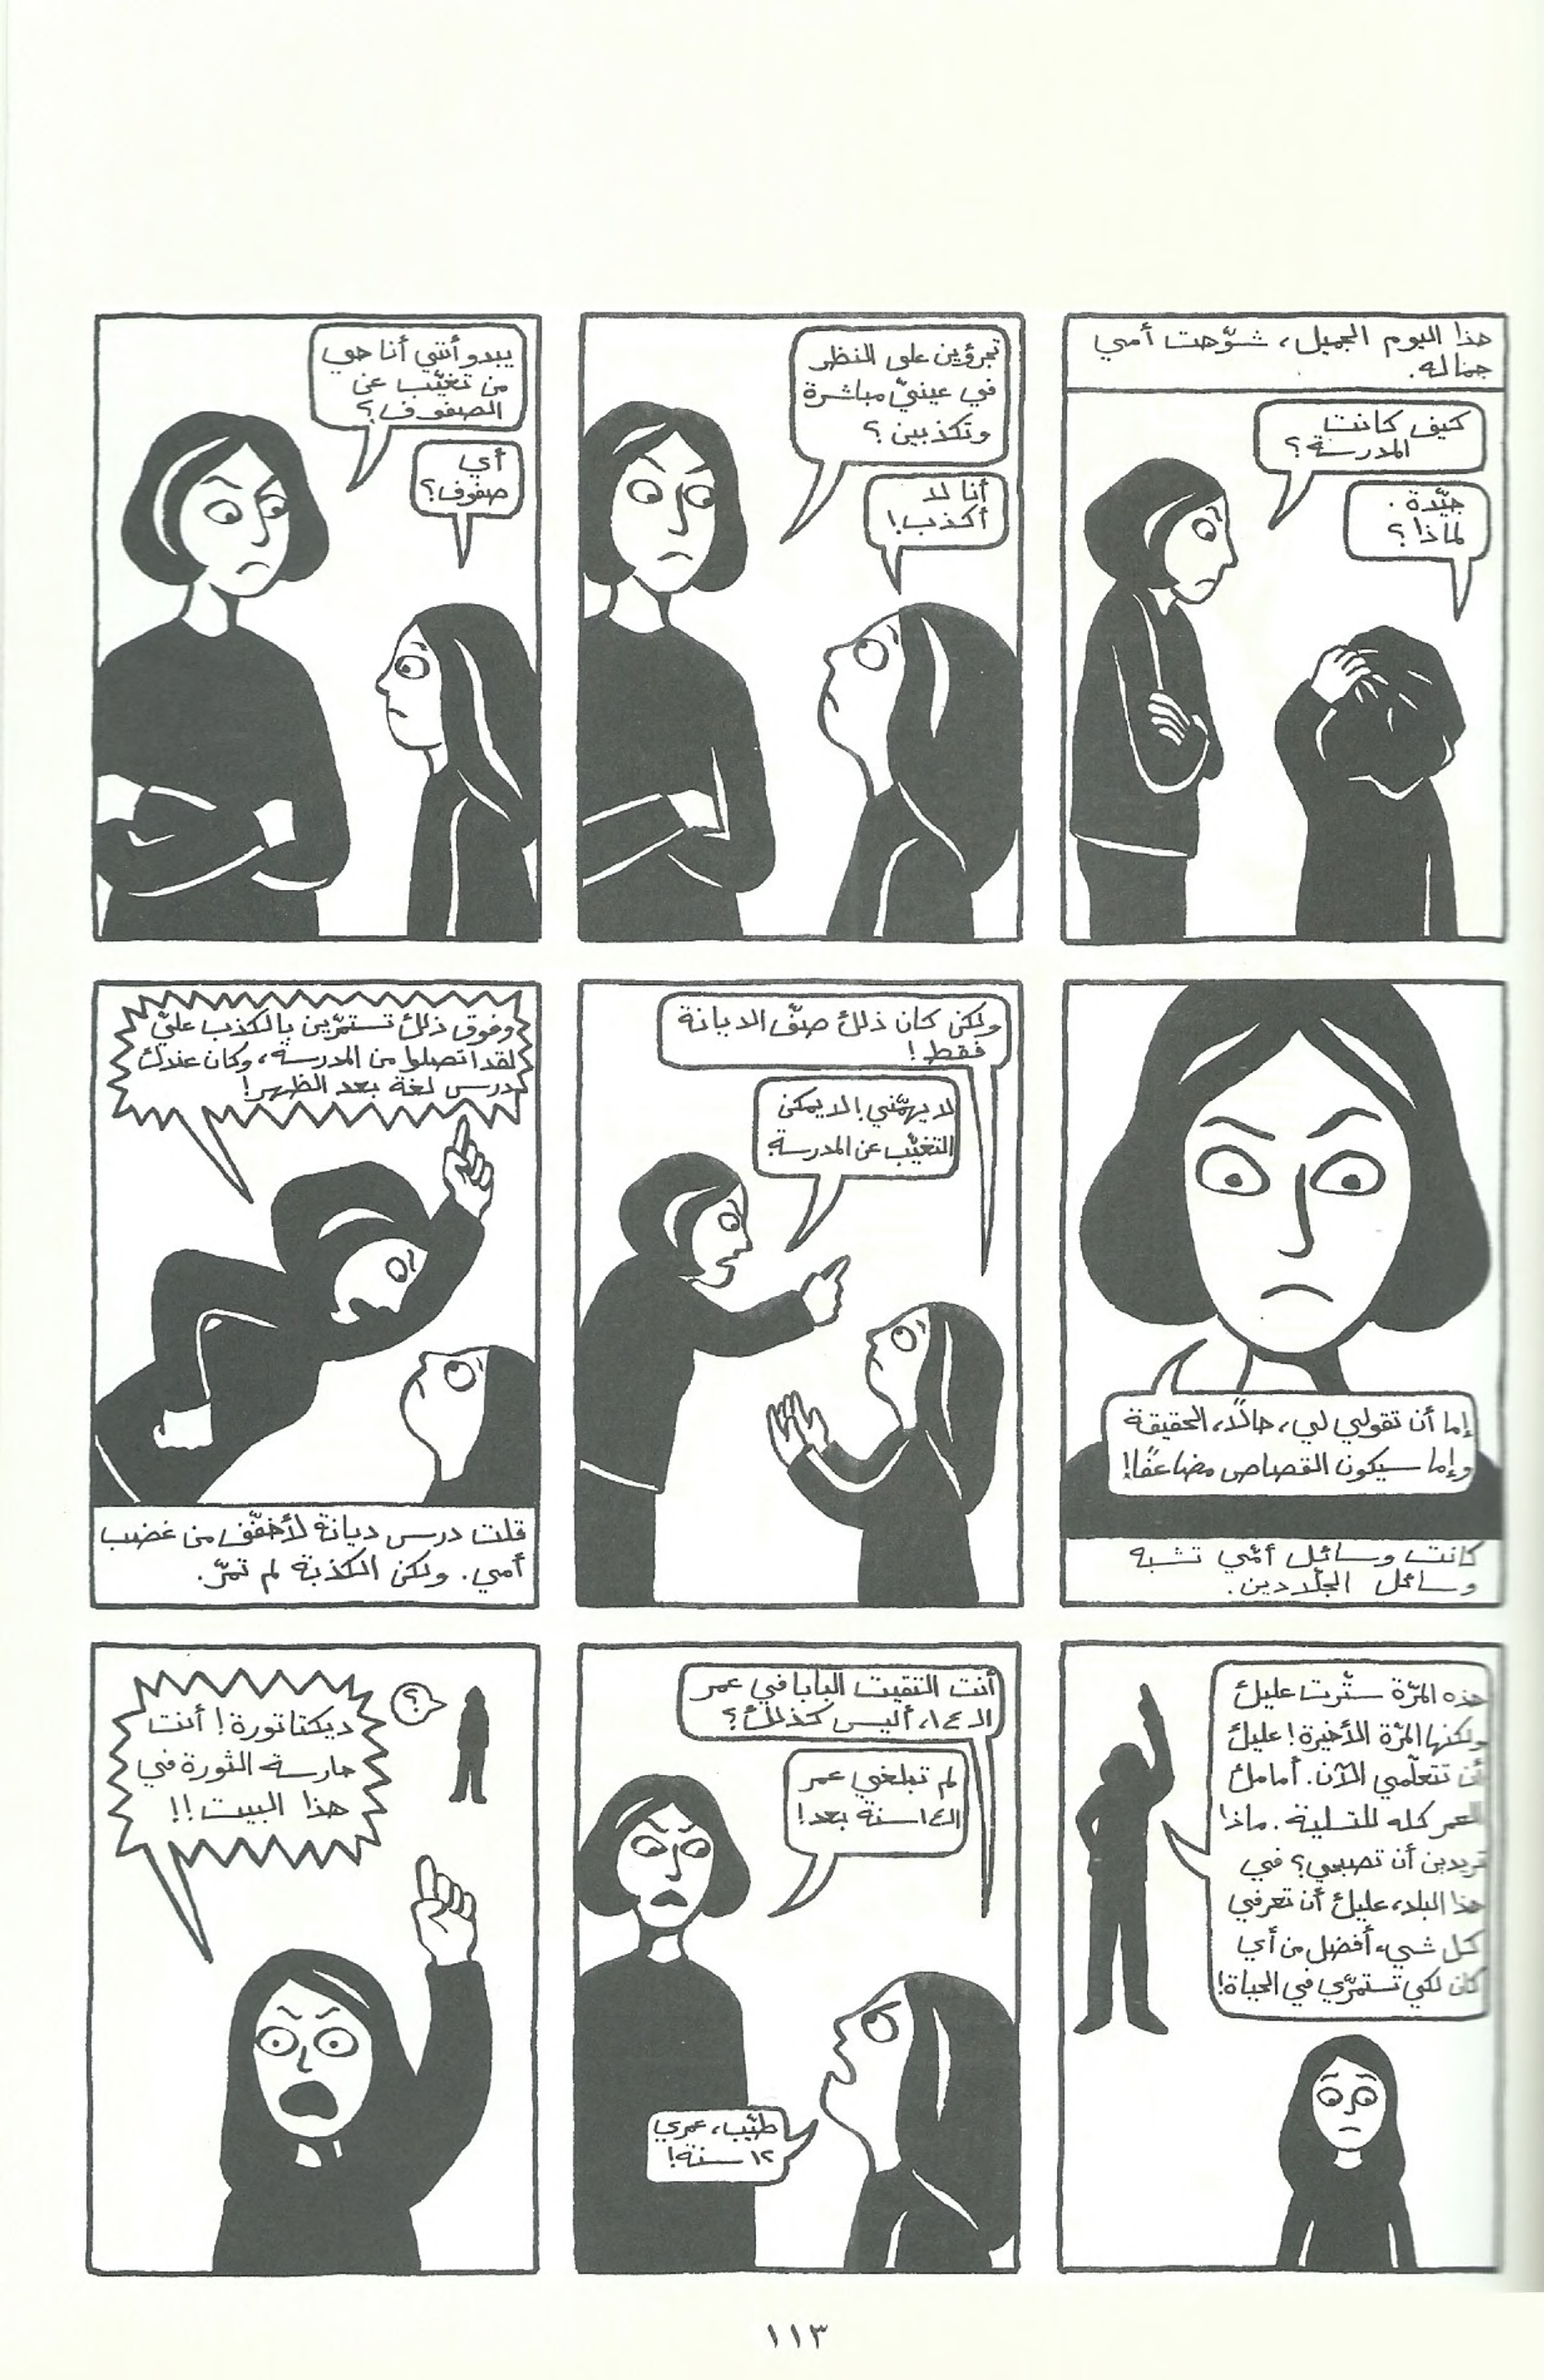 هذا اليوم الجميل، شوّهت أمي
جماله.
كيف كانت
المدرسة؟
جيّدة.
لماذا؟
تجرؤين على النظر
في عينيّ مباشرة
وتكذبين؟
أنا لا
أكذب!
يبدو أنني أنا هي
من تغيّب عن
الصفوف؟
أي
صفوف؟
إما أن تقولي لي، حالاً، الحقيقة
وإما سيكون القصاص مضاعفًا!
كانت وسائل أمّي تشبه
وسائل الجلادين.
ولكن كان ذلك صفّ الديانة
فقط!
لا يهمّني! لا يمكن
التغيّب عن المدرسة!
وفوق ذلك تستمرّين بالكذب عليّ
لقد اتصلوا من المدرسة، وكان عندك
درس لغة بعد الظهر!
قلت درس ديانة لأخفّف من غضب
أمي. ولكن الكذبة لم تمرّ.
هذه المرّة ستّرت عليك
ولكنها المرّة الأخيرة! عليك
أن تتعلّمي الآن. أمامك
العمر كله للتسلية. ماذا
تريدين أن تصبحي؟ في
هذا البلد، عليك أن تعرفي
كل شيء أفضل من أي
كان لكي تستمرّي في الحياة!
أنت التقيت البابا في عمر
الـ١٤، أليس كذلك؟
لم تبلغي عمر
الـ١٤ سنة بعد!
طيّب، عمري
١٢ سنة!
؟
ديكتاتورة! أنت
حارسة الثورة في
هذا البيت!!
١١٣